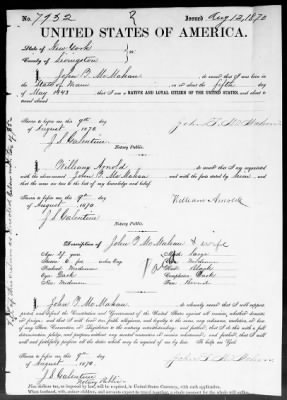 No. 7952 2 Issued Aug 12, 1870
UNITED STATES OF AMERICA.
State of New York
County of Livingston
I, John F. McMahan, do swear that I was born in the
State of on or about the fifth day
of May 1843 that I am a NATIVE AND LOYAL CITIZEN OF THE UNITED STATES, and about to
travel abroad
Sworn to before me this 9th day
of August, 1870
John F. McMahan
J. S. Galentine
Notary Public.
I, William Arnold, do swear that I am acquainted
with the above named John F. McMahan and with the facts stated by him, and
that the same are true to the best of my knowledge and belief.
Sworn to before me this 9th day
of August, 1870
William Arnold
J. S. Galentine
Notary Public.
Description of John F. McMahan & wife
Age: 27 years Mouth: Large
Stature: 6 feet inches, Eng. Chin: Medium
Forehead: Medium Hair: Black
Eyes: Dark Complexion: Dark
Nose: Medium Face: Round
I, John F. McMahan, do solemnly swear that I will support,
protect and defend the Constitution and Government of the United States against all enemies, whether domestic
or foreign; and that I will bear true faith, allegiance, and loyalty to the same, any ordinance, resolution, or law
of any State, Convention, or Legislature to the contrary notwithstanding; and further, that I do this with a full
determination, pledge, and purpose, without any mental reservation or evasion whatsoever; and further, that I will
well and faithfully perform all the duties which may be required of me by law. So help me God.
Sworn to before me this 9th day
of August, 1870
John F. McMahan
J. S. Galentine
Notary Public